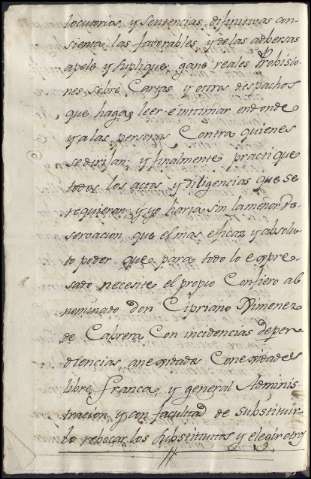 locutorias, y Sentencias difinitivas con
sienta las favorables, y de las adversas
apele y suplique, gane reales Probisio
nes sobre Cartas y otros despachos
que haga leer e intimar en donde
y a las personas Contra quienes
se dirijan; y finalmente practique
todos los actos y diligencias que se
requieran, y yo haria sin la menor re
servacion que el mas eficaz y absolu
to poder que para todo lo expre
sado necesite el propio Confiero al
nominado don Cipriano Ximenez
de Cabrera Con incidencias depen
dencias anexidades Conexidades
libre, franca, y general Adminis
tracion y con facultad de substituir
lo rebocar los Substitutos y elegir otros